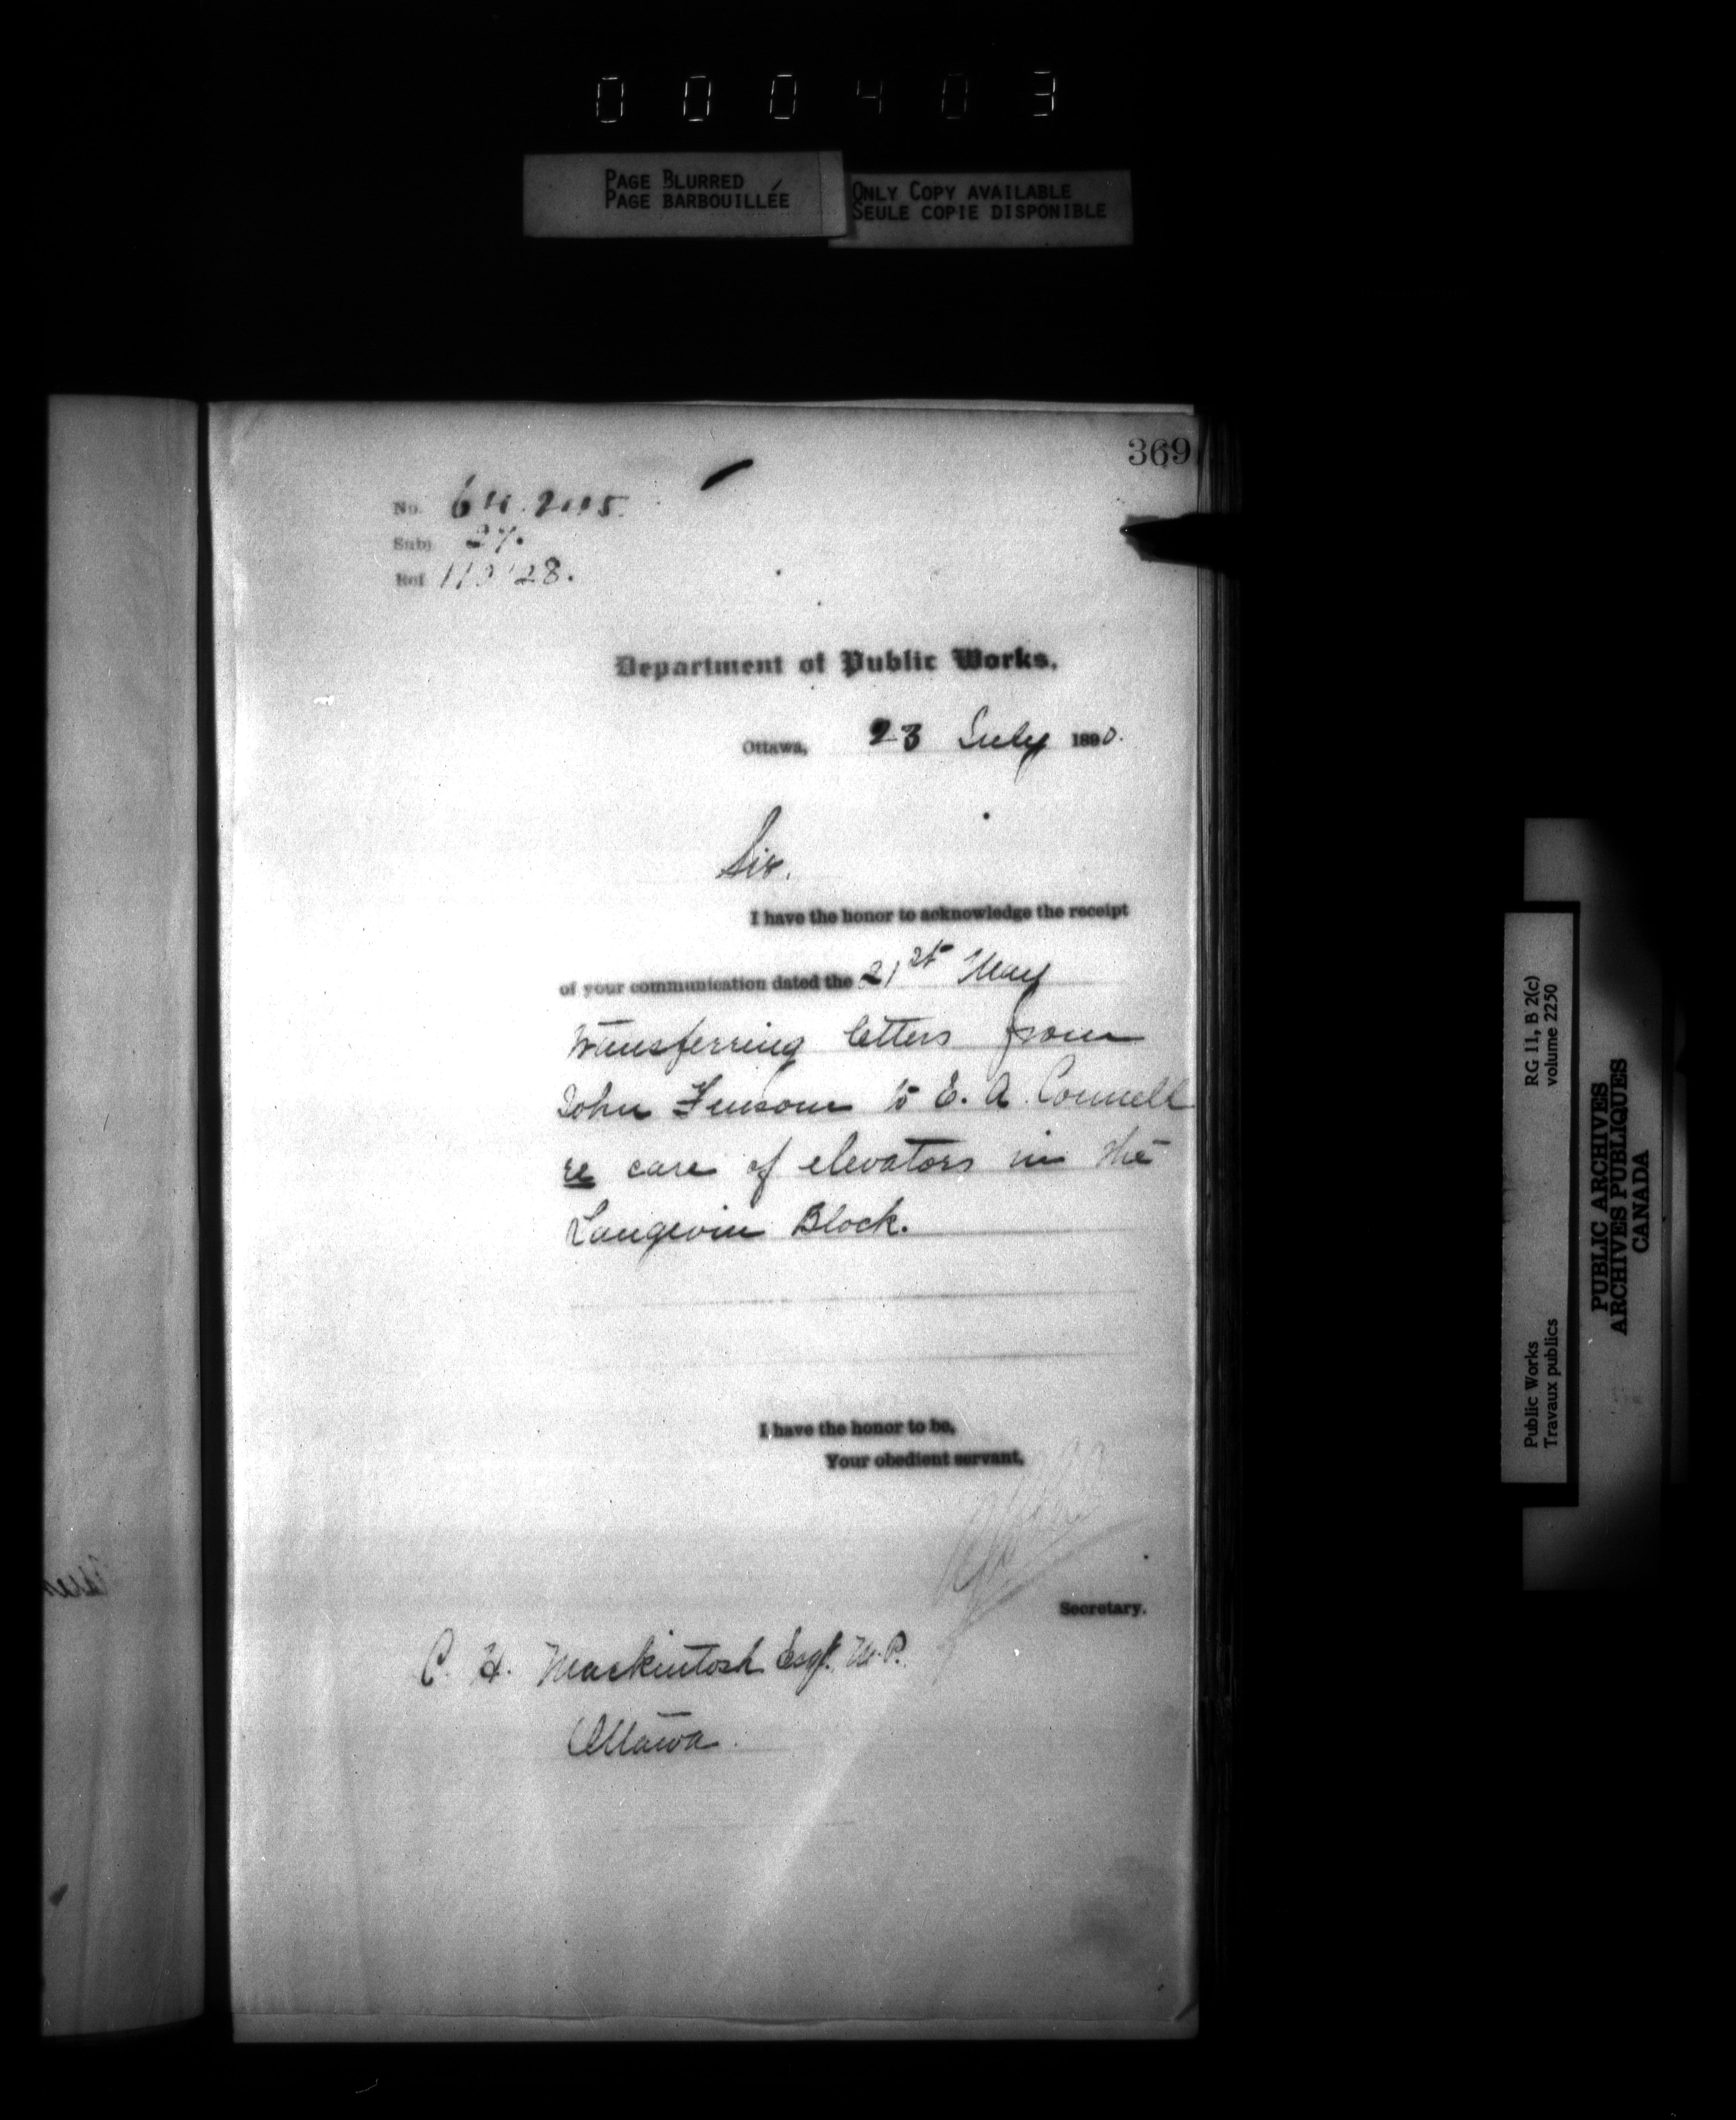 000403
PAGE BLURRED
PAGE BARBOUILLÉE
ONLY COPY AVAILABLE
SEULE COPIE DISPONIBLE
369
No.
Subj
Ref
Department of Public Works.
Ottawa, 23 July 1890.
Sir.
I have the honor to acknowledge the receipt
of your communication dated the 21st May
transferring letters from
John Fensom to E. A. Connell
re care of elevators in the
Langevin Block.
I have the honor to be,
Your obedient servant,
Secretary.
C. H. Mackintosh Esq. M.P.
Ottawa.
Public Works RG 11, B 2(c)
Travaux publics volume 2250
PUBLIC ARCHIVES
ARCHIVES PUBLIQUES
CANADA